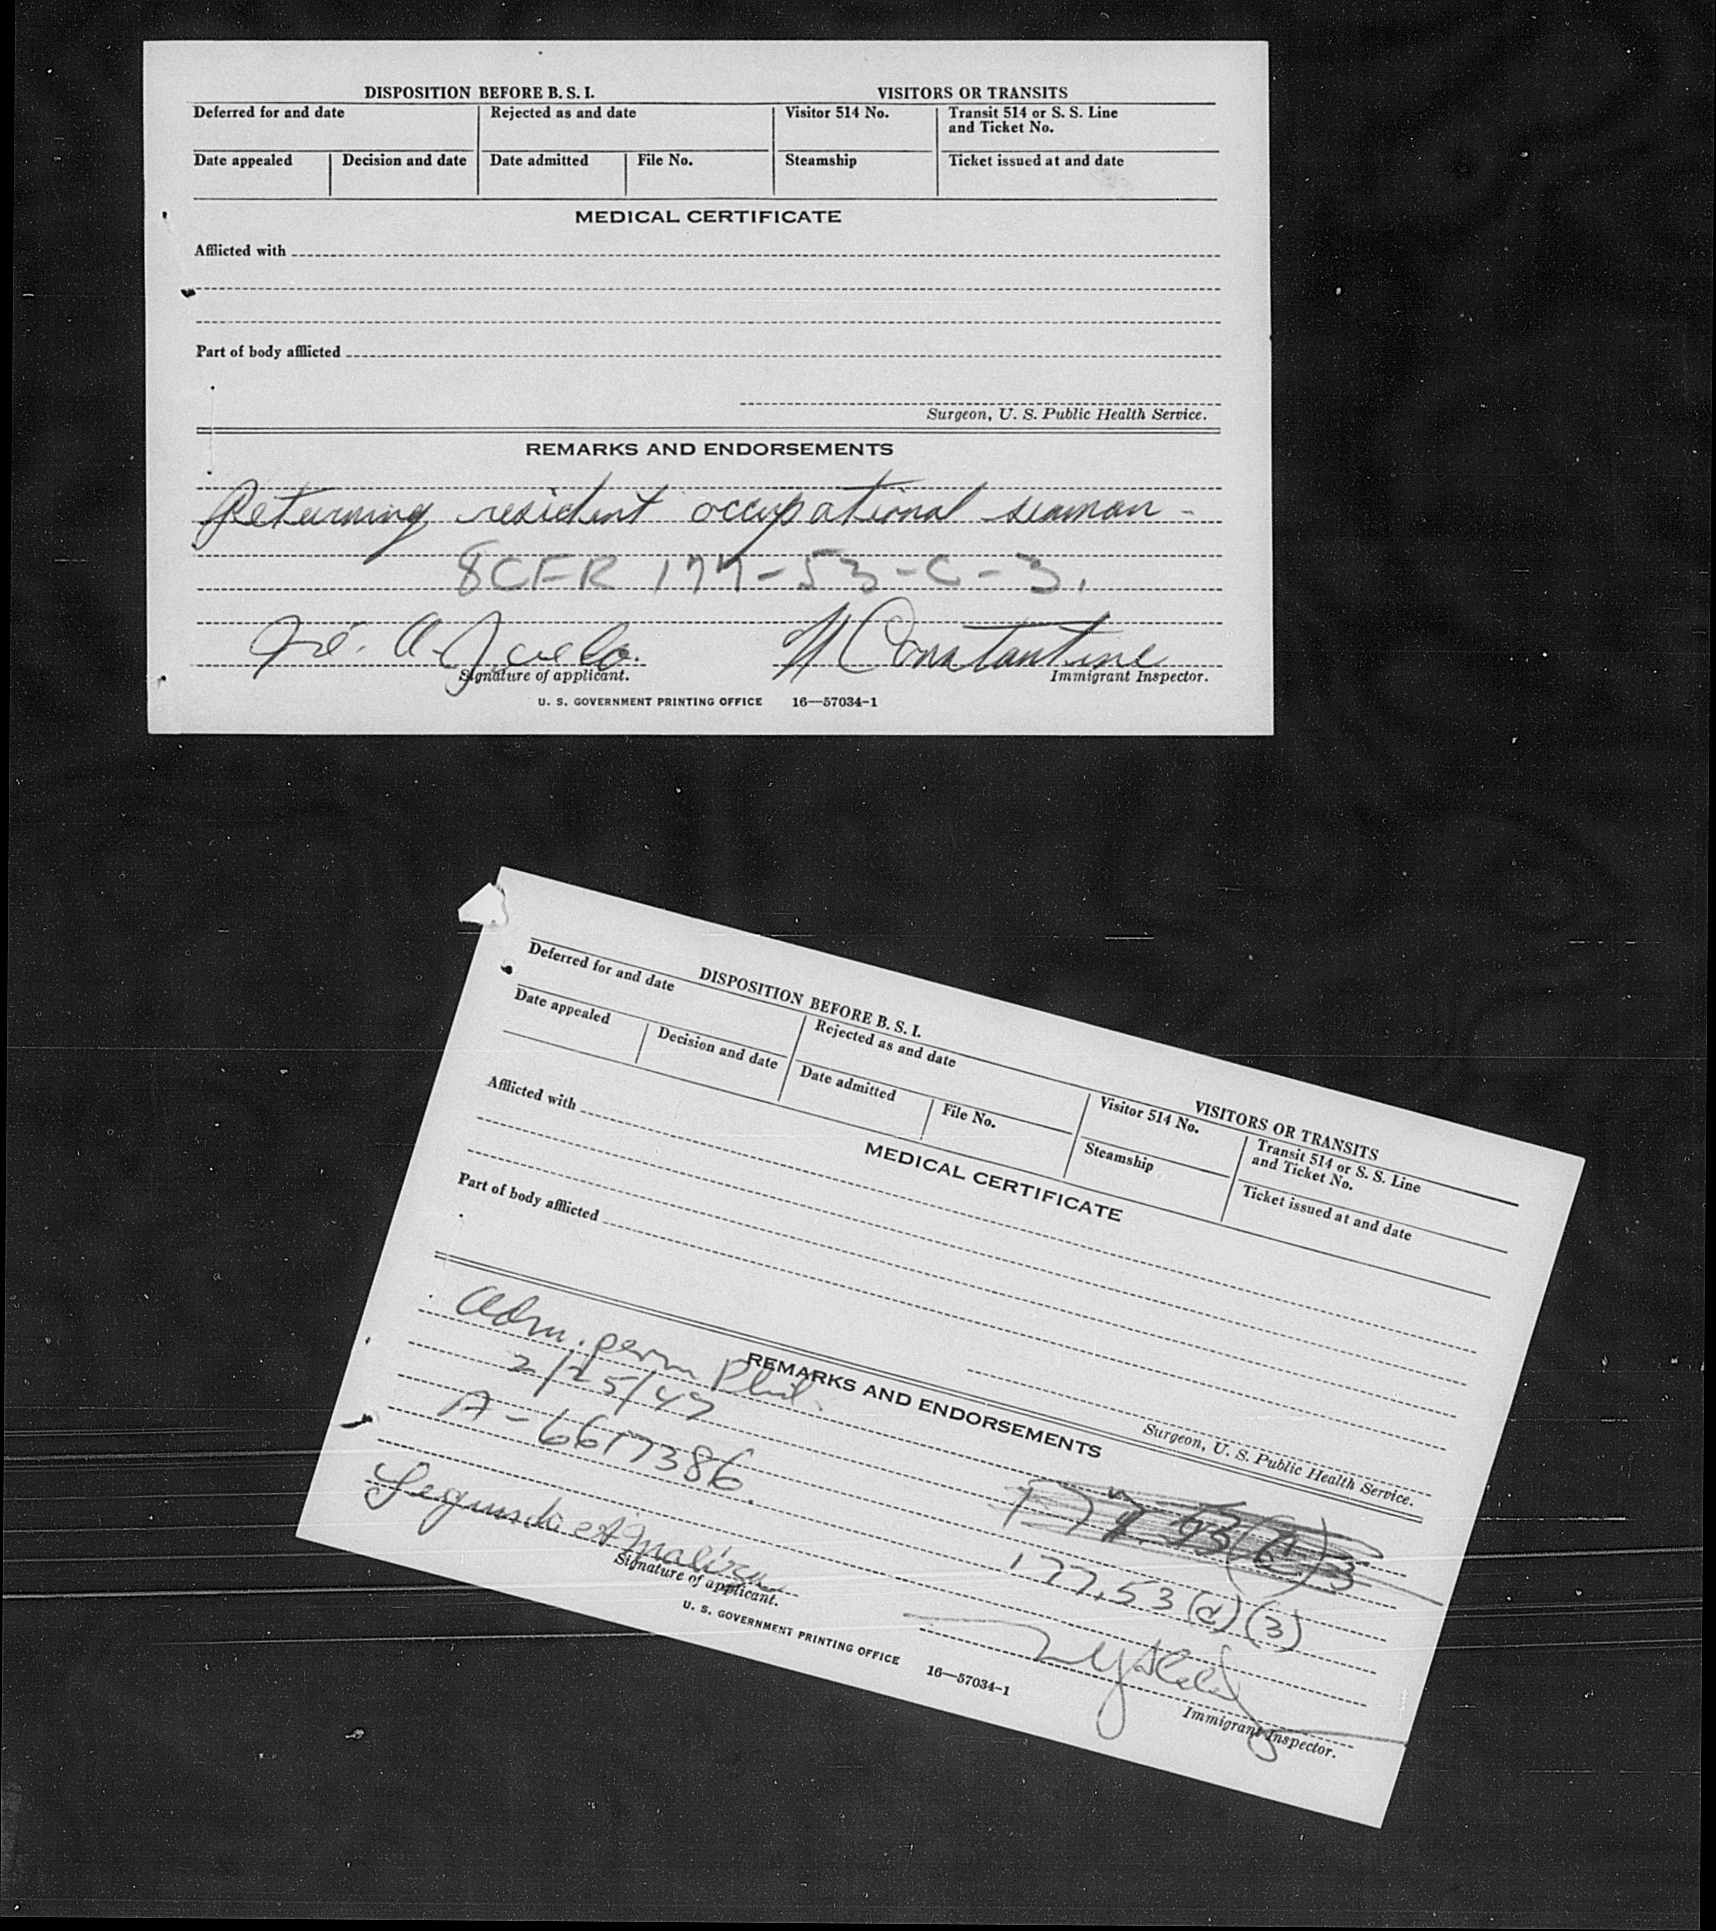 DISPOSITION BEFORE B. S. I.
VISITORS OR TRANSITS
Deferred for and date
Rejected as and date
Visitor 514 No.
Transit 514 or S. S. Line
and Ticket No.
Date appealed
Decision and date
Date admitted
File No.
Steamship
Ticket issued at and date
MEDICAL CERTIFICATE
Afflicted with
Part of body afflicted
Surgeon, U. S. Public Health Service.
REMARKS AND ENDORSEMENTS
Returning resident occupational seaman -
8CFR 177-53-C-3.
A.
Constantine
Signature of applicant.
Immigrant Inspector.
U. S. GOVERNMENT PRINTING OFFICE 16—57034-1
DISPOSITION BEFORE B. S. I.
VISITORS OR TRANSITS
Deferred for and date
Rejected as and date
Visitor 514 No.
Transit 514 or S. S. Line
and Ticket No.
Date appealed
Decision and date
Date admitted
File No.
Steamship
Ticket issued at and date
MEDICAL CERTIFICATE
Afflicted with
Part of body afflicted
Surgeon, U. S. Public Health Service.
REMARKS AND ENDORSEMENTS
Adm. perm Phil.
2/25/47
A-6617386.
177.53(d)(3)
Segundo
Signature of applicant.
Immigrant Inspector.
U. S. GOVERNMENT PRINTING OFFICE 16—57034-1